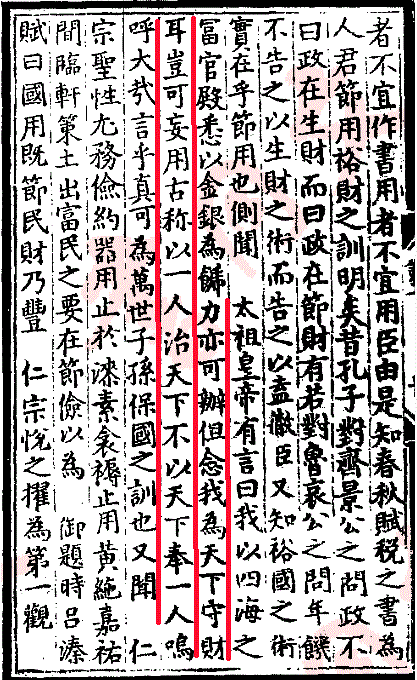 者不宜作書用者不宜用臣由是知春秋賦稅之書為
人君節用裕財之訓明矣昔孔子對齊景公之問政不
曰政在生財而曰政在節財有若對魯哀公之問年饑
不告之以生財之術而告之以盍徹臣又知裕國之術
實在乎節用也側聞 太祖皇帝有言曰我以四海之
富宫殿悉以金銀為餙力亦可辦但念我為天下守財
耳豈可妄用古称以一人治天下不以天下奉一人嗚
呼大哉言乎真可為萬世子孫保國之訓也又聞 仁
宗聖性尤務儉約器用止於漆素衾褥止用黄絁嘉祐
間臨軒策士出富民之要在節儉以為 御題時吕溱
賦曰國用既節民財乃豐 仁宗悅之擢為第一觀